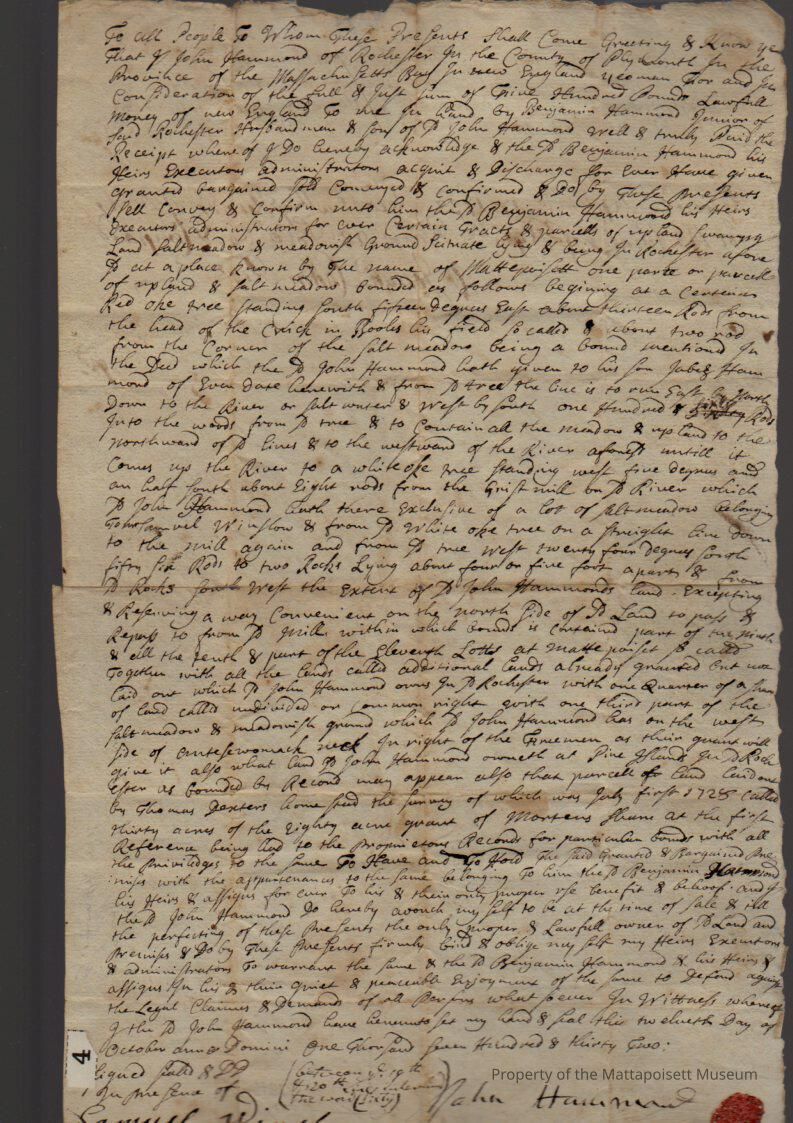 To all People To Whom These Presents Shall Come Greeting & Know ye
That I John Hammond of Rochester In the County of Plymouth In the
Province of the Massachusetts Bay In new England Yeoman For and In
Consideration of the full & Just sum of Five Hundred Pounds Lawfull
money of new England To me In hand by Benjamin Hammond Junior of
said Rochester Husbandman & son of sd John Hammond Well & truly Paid the
Receipt whereof I Do hereby acknowlidge & the sd Benjamin Hammond his
Heirs Executors administrators acquit & Discharge for Ever Have given
granted bargained sold Conveyed & confirmed & Do by These Presents
sell Convey & Confirm unto him the sd Benjamin Hammond his Heirs
Executors administrators for ever Certain Tracts & parcells of upland Swampy
Land saltmeadow & meadowish Ground Scituate lying & being In Rochester afore
sd at a place known by the name of Mattepoisett one parte or parcell
of upland & salt meadow bounded as follows begining at a Certain
Red oke tree standing South fifteen degrees East about thirteen Rods from
the head of the Crick in Booles his field so called & about two rod
from the Corner of the salt meadow being a bound mentioned In
the Deed which the sd John Hammond hath given to his son Jabez Ham
mond of Even date herewith & from sd tree the line is to run East by North
Down to the River or salt water & West by south one Hundred & Rods
Into the woods from sd tree & to Contain all the meadow & upland to the
northward of sd lines & to the westward of the River aforesd untill it
Comes up the River to a white oke tree standing west five degrees and
an half south about Eight rods from the Grist mill on sd River which
sd John Hammond hath there Exclusive of a lot of salt meadow belonging
to Samuel Winslow & from sd White oke tree on a straight line down
to the mill again and from sd tree West twenty four Degrees South
fifty six Rods to two Rocks Lying about four or five foot aparte & from
sd Rocks West the Extent of sd John Hammonds land Excepting
& Reserving a way Convenient on the North side of sd Land to pass &
Repass to & from sd Mill within which bounds is contained part of the ninth
& all the tenth & part of the Eleventh Lotts at mattepoiset so called
Together with all the lands called additional lands already granted but not
laid out which sd John Hammond owns In sd Rochester with one Quarter of a share
of land called undivided or common right with one third part of the
salt meadow & meadowish ground which sd John Hammond has on the west
side of neck In right of the as their grant will
give it also what land sd John Hammond owneth at Pine Island In sd Roch
ester as bounded by Record may appear also that parcell of land laid out
by Thomas Dexters homestead the survey of which was July first 1728 called
thirty acres of the Eighty acre grant of Mortons share at the first
Reference being had to the Proprietors Records for particular bounds with all
the priviledges to the same To Have and To Hold The said Granted & Bargained Pre
mises with the appurtenances to the same belonging To him the sd Benjamin Hammond
his Heirs & assigns for ever To his & their only proper use benefit & behoof and I
the sd John Hammond Do hereby avouch my self to be at the time of sale & till
the perfecting of these Presents the only proper & Lawfull owner of sd Land and
Premises & Do by These Presents firmly bind & oblige my self my Heirs Executors
& administrators To warrant the same & the sd Benjamin Hammond & his Heirs &
assigns In his & their Quiet & peaceable Enjoyment of the same to Defend against
the Legal Claimes & Demands of all Persons whatsoever In Wittness whereof
I the sd John Hammond have hereunto set my hand & seal this twelveth Day of
October anno Domini One Thousand seven Hundred & thirty Two:
Signed Sealed & DD
In presence of
(between ye 19th
& 20th line interlined
the word sixty)
John Hammond
4
Property of the Mattapoisett Museum